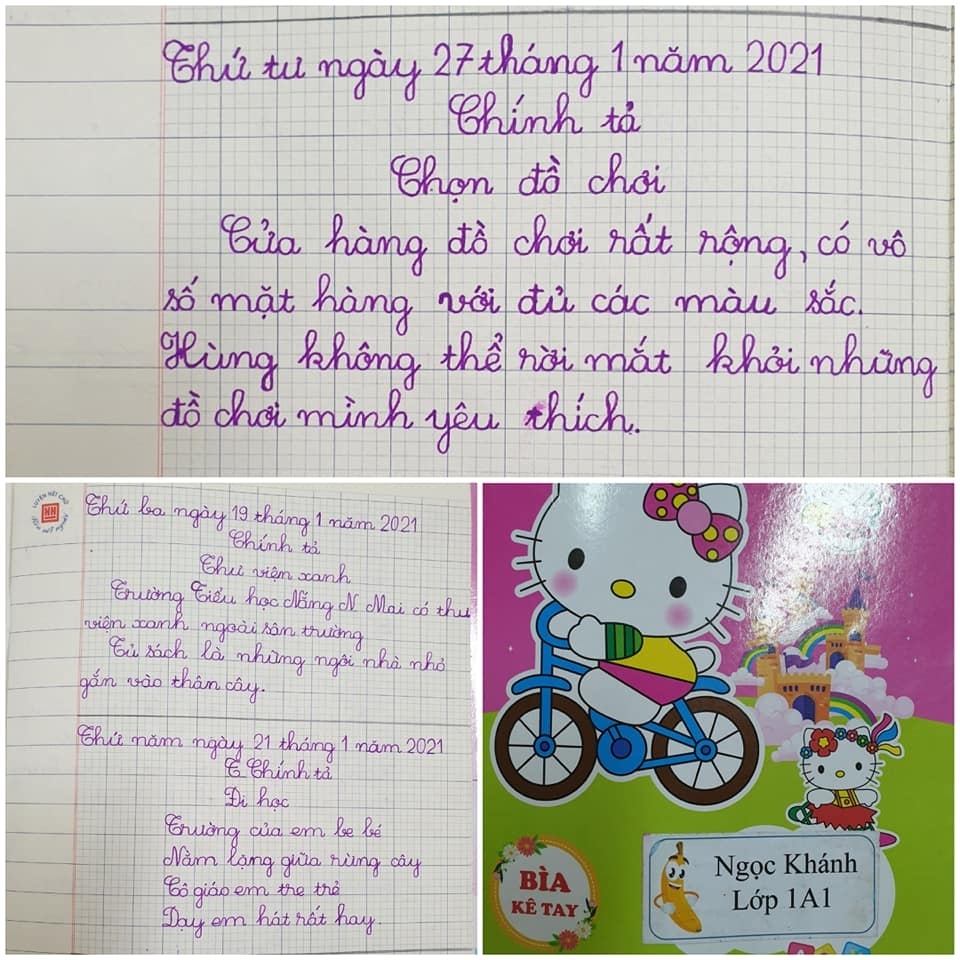 Thứ tư ngày 27 tháng 1 năm 2021
Chính tả
Chọn đồ chơi
Cửa hàng đồ chơi rất rộng, có vô
số mặt hàng với đủ các màu sắc.
Hùng không thể rời mắt khỏi những
đồ chơi mình yêu thích.
LUYỆN NÉT CHỮ
Thứ ba ngày 19 tháng 1 năm 2021
Chính tả
Thư viện xanh
Trường Tiểu học Nẵng N Mai có thư
viện xanh ngoài sân trường
Tủ sách là những ngôi nhà nhỏ
gắn vào thân cây.
Thứ năm ngày 21 tháng 1 năm 2021
C Chính tả
Đi học
Trường của em be bé
Nằm lặng giữa rừng cây
Cô giáo em tre trẻ
Dạy em hát rất hay.
BÌA
KÊ TAY
Ngọc Khánh
Lớp 1A1